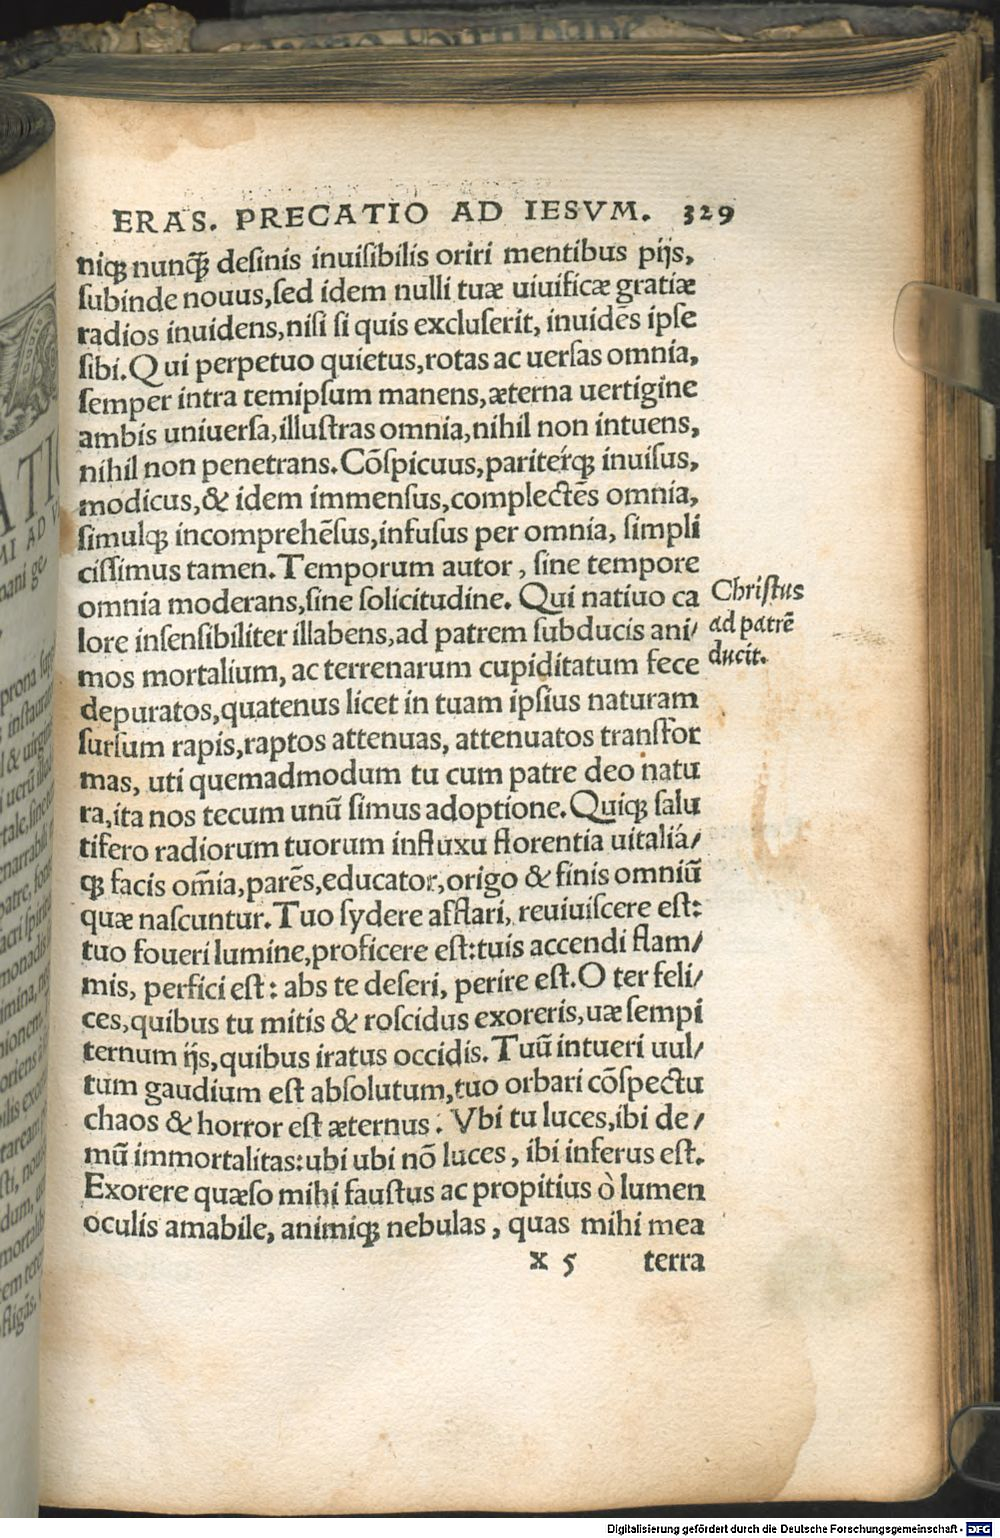 ERAS. PRECATIO AD IESVM. 329
niqꝫ nunꝗ̃ desinis inuisibilis oriri mentibus pijs,
subinde nouus, sed idem nulli tuæ uiuificæ gratiæ
radios inuidens, nisi si quis excluserit, inuidẽs ipse
sibi. Qui perpetuo quietus, rotas ac uersas omnia,
semper intra temipsum manens, æterna uertigine
ambis uniuersa, illustras omnia, nihil non intuens,
nihil non penetrans. Cõspicuus, pariterqꝫ inuisus,
modicus, & idem immensus, complectẽs omnia,
simulqꝫ incomprehẽsus, infusus per omnia, simpli
cissimus tamen. Temporum autor, sine tempore
omnia moderans, sine solicitudine. Qui natiuo ca
lore insensibiliter illabens, ad patrem subducis ani/
mos mortalium, ac terrenarum cupiditatum fece
depuratos, quatenus licet in tuam ipsius naturam
sursum rapis, raptos attenuas, attenuatos transfor
mas, uti quemadmodum tu cum patre deo natu
ra, ita nos tecum unũ simus adoptione. Quiqꝫ salu
tifero radiorum tuorum influxu florentia uitaliá/
qꝫ facis om̃ia, parẽs, educator, origo & finis omniũ
quæ nascuntur. Tuo sydere afflari, reuiuiscere est:
tuo foueri lumine, proficere est: tuis accendi flam/
mis, perfici est: abs te deseri, perire est. O ter feli/
ces, quibus tu mitis & roscidus exoreris, uæ sempi
ternum ijs, quibus iratus occidis. Tuũ intueri uul/
tum gaudium est absolutum, tuo orbari cõspectu
chaos & horror est æternus. Vbi tu luces, ibi de/
mũ immortalitas: ubi ubi nõ luces, ibi inferus est.
Exorere quæso mihi faustus ac propitius ò lumen
oculis amabile, animiqꝫ nebulas, quas mihi mea
x 5 terra
Christus
ad patrẽ
ducit.
Digitalisierung gefördert durch die Deutsche Forschungsgemeinschaft - DFG